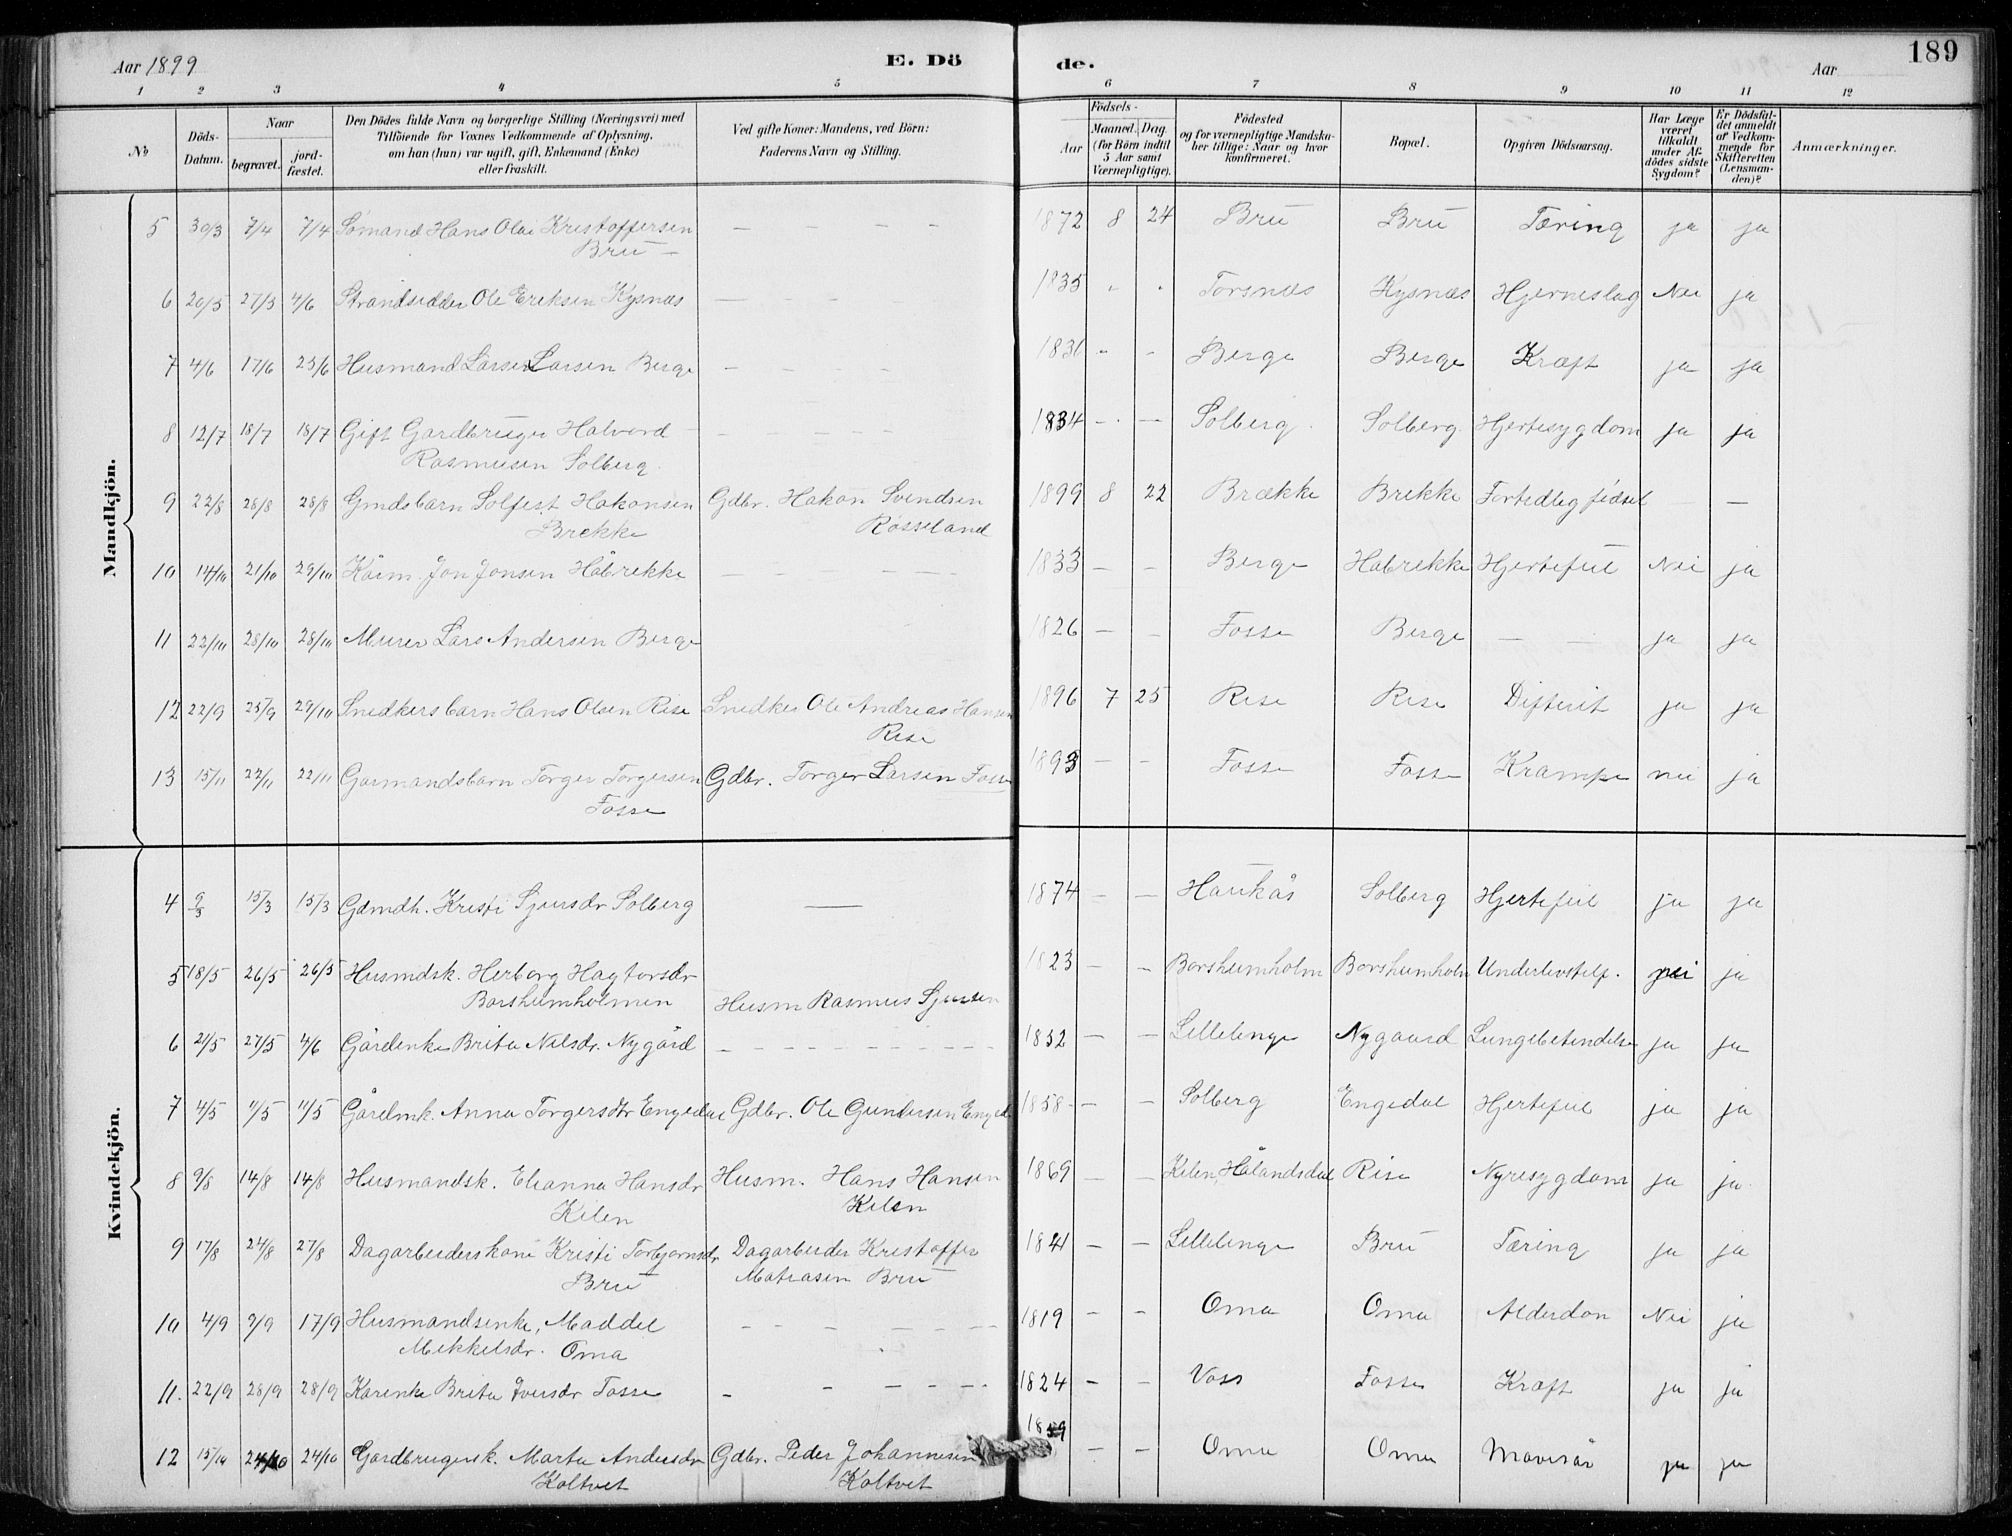 Aar 1899 E. Dö de. Aar 189
1 2 3 4 5 6 7 8 9 10 11 12
No Döds-Datum. Naar begravet. jord-fæstet. Den Dödes fulde Navn og borgerlige Stilling (Næringsvei) med Tilföiende for Voxnes Vedkommende af Oplysning, om han (hun) var ugift, gift, Enkemand (Enke) eller fraskilt. Ved gifte Koner: Mandens, ved Börn: Faderens Navn og Stilling. Födsels- Aar Maaned. Dag. (for Börn indtil 5 Aar samt Værnepligtige). Födested og for værnepligtige Mandskaber tillige: Naar og hvor konfirmeret. Bopæl. Opgiven Dödsaarsag. Har Læge været tilkaldt under Afdödes sidste Sygdom? Er Dödsfaldet anmeldt af Vedkommende for Skifteretten (Lensmanden)? Anmærkninger.
Mandkjön.
5 30/3 7/4 7/4 Sømand Hans Olai Kristoffersen - - - - 1872 8 24 Bru Bru Tæring ja ja
Bru -
6 20/5 27/5 4/6 Strandsidder Ole Eriksen Kysnæs - - - 1835 " " Torsnæs Kysnæs Hjerneslag Nei ja
7 4/6 17/6 25/6 Husmand Larsen Larsen Berge - - - - 1831 - - Berge Berge Kræft ja ja
8 12/7 18/7 18/7 Gift Gardbruger Halvord - - - - 1834 - - Solberg Solberg Hjertesygdom ja ja
Rasmusen Solberg.
9 22/8 28/8 28/8 Gmdsbarn Solfest Hakonsen Gdbr. Hakon Svendsen 1899 8 22 Brække Brekke Fortedlig fødsel - -
Brekke Røsseland
10 14/10 21/10 29/10 Kårm. Jon Jonsen Håbrekke - - - - 1833 - - Berge Habrekke Hjertefeil Nei ja
11 22/10 28/10 28/10 Murer Lars Andersen Berge 1826 - - Fosse Berge - - ja ja
12 22/9 25/9 29/10 Snedkersbarn Hans Olsen Rise Snedker Ole Andreas Hansen 1896 7 25 Rise Rise Difterit ja ja
Rise
13 15/11 22/11 22/11 Garmandsbarn Torger Torgersen Gdbr. Torger Larsen Fosse 1893 - - Fosse Fosse Krampe nei ja
Fosse
Kvindekjön.
4 9/3 15/3 15/3 Gdmdh. Kristi Sjursdr Solberg — 1874 - - Haukås Solberg Hjertefeil ja ja
5 18/5 26/5 26/5 Husmdsk. Herborg Hagtorsdr 1823 - - Borshumholm Borshumholm Underlivstilf. nei ja
Borshumholmen Husm Rasmus Sjursen
6 21/5 27/5 4/6 Gårdenke Brita Nilsdr. Nygård - - - - 1832 - - Lillelinge Nygaard Lungebetendelse ja ja
7 4/5 11/5 11/5 Gårdmk. Anna Torgersdtr Engedal Gdbr. Ole Gundersen Enged. 1858 - - Solberg Engedal Hjertefeil ja ja
8 9/8 14/8 14/8 Husmandsk. Elianna Hansdr Husm. Hans Hansen 1869 - - Kilen, Hålandsdal Rise Nyresygdom ja ja
Kilen Kilen
9 17/8 24/8 27/8 Dagarbeiderskone Kristi Torbjørnsdr Dagarbeider Kristoffer 1821 - - Lillelinge Bru Tæring ja ja
Bru Matiasen Bru
10 4/9 9/9 17/9 Husmandsenke, Maddel - - - - 1819 - - Oma Oma Alderdon Nei ja
Mikkelsdr. Oma
11. 22/9 28/9 28/9 Kårenke Brita Iversdr Fosse - - - - 1824 - - Voss Fosse Kræft ja ja
12 15/10 24/10 24/10 Gardbrugersk. Marta Andersdr Gdbr. Peder Johannesen 1859 - - Oma Oma Mavesår ja ja
Koltvet Koltvet